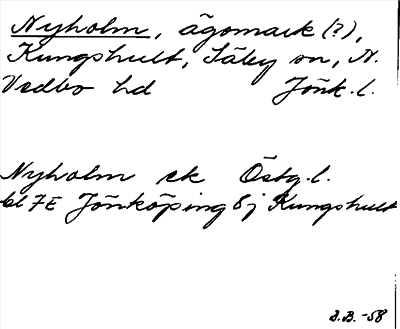 Nyholm, ägomark (?),
Kungshult, Säby sn, N.
Vedbo hd Jönk. l.
Nyholm ek Östg. l.
bl 7E Jönköping Ej Kungshult
S.B. -58